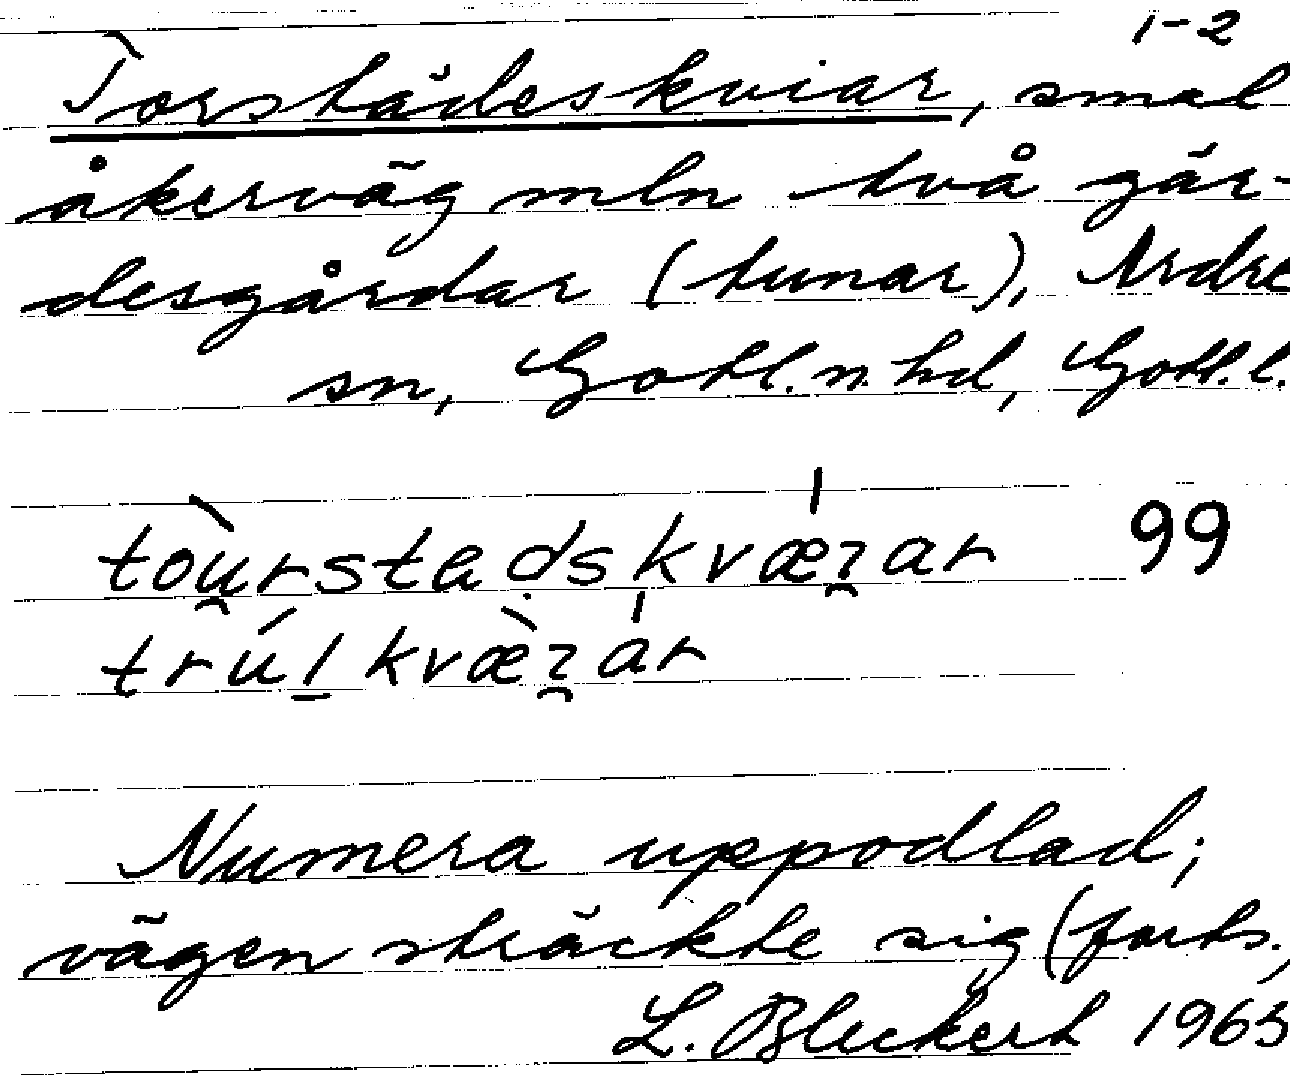 1-2
Torstädeskviar, smal
åkerväg mln två gär-
desgårdar (tunar), Ardre
sn, Gotl. n. hd, Gotl. l.
99
trúl kvæ̀ɿár
Numera uppodlad;
vägen sträckte sig (forts.)
L. Bleckert 1963